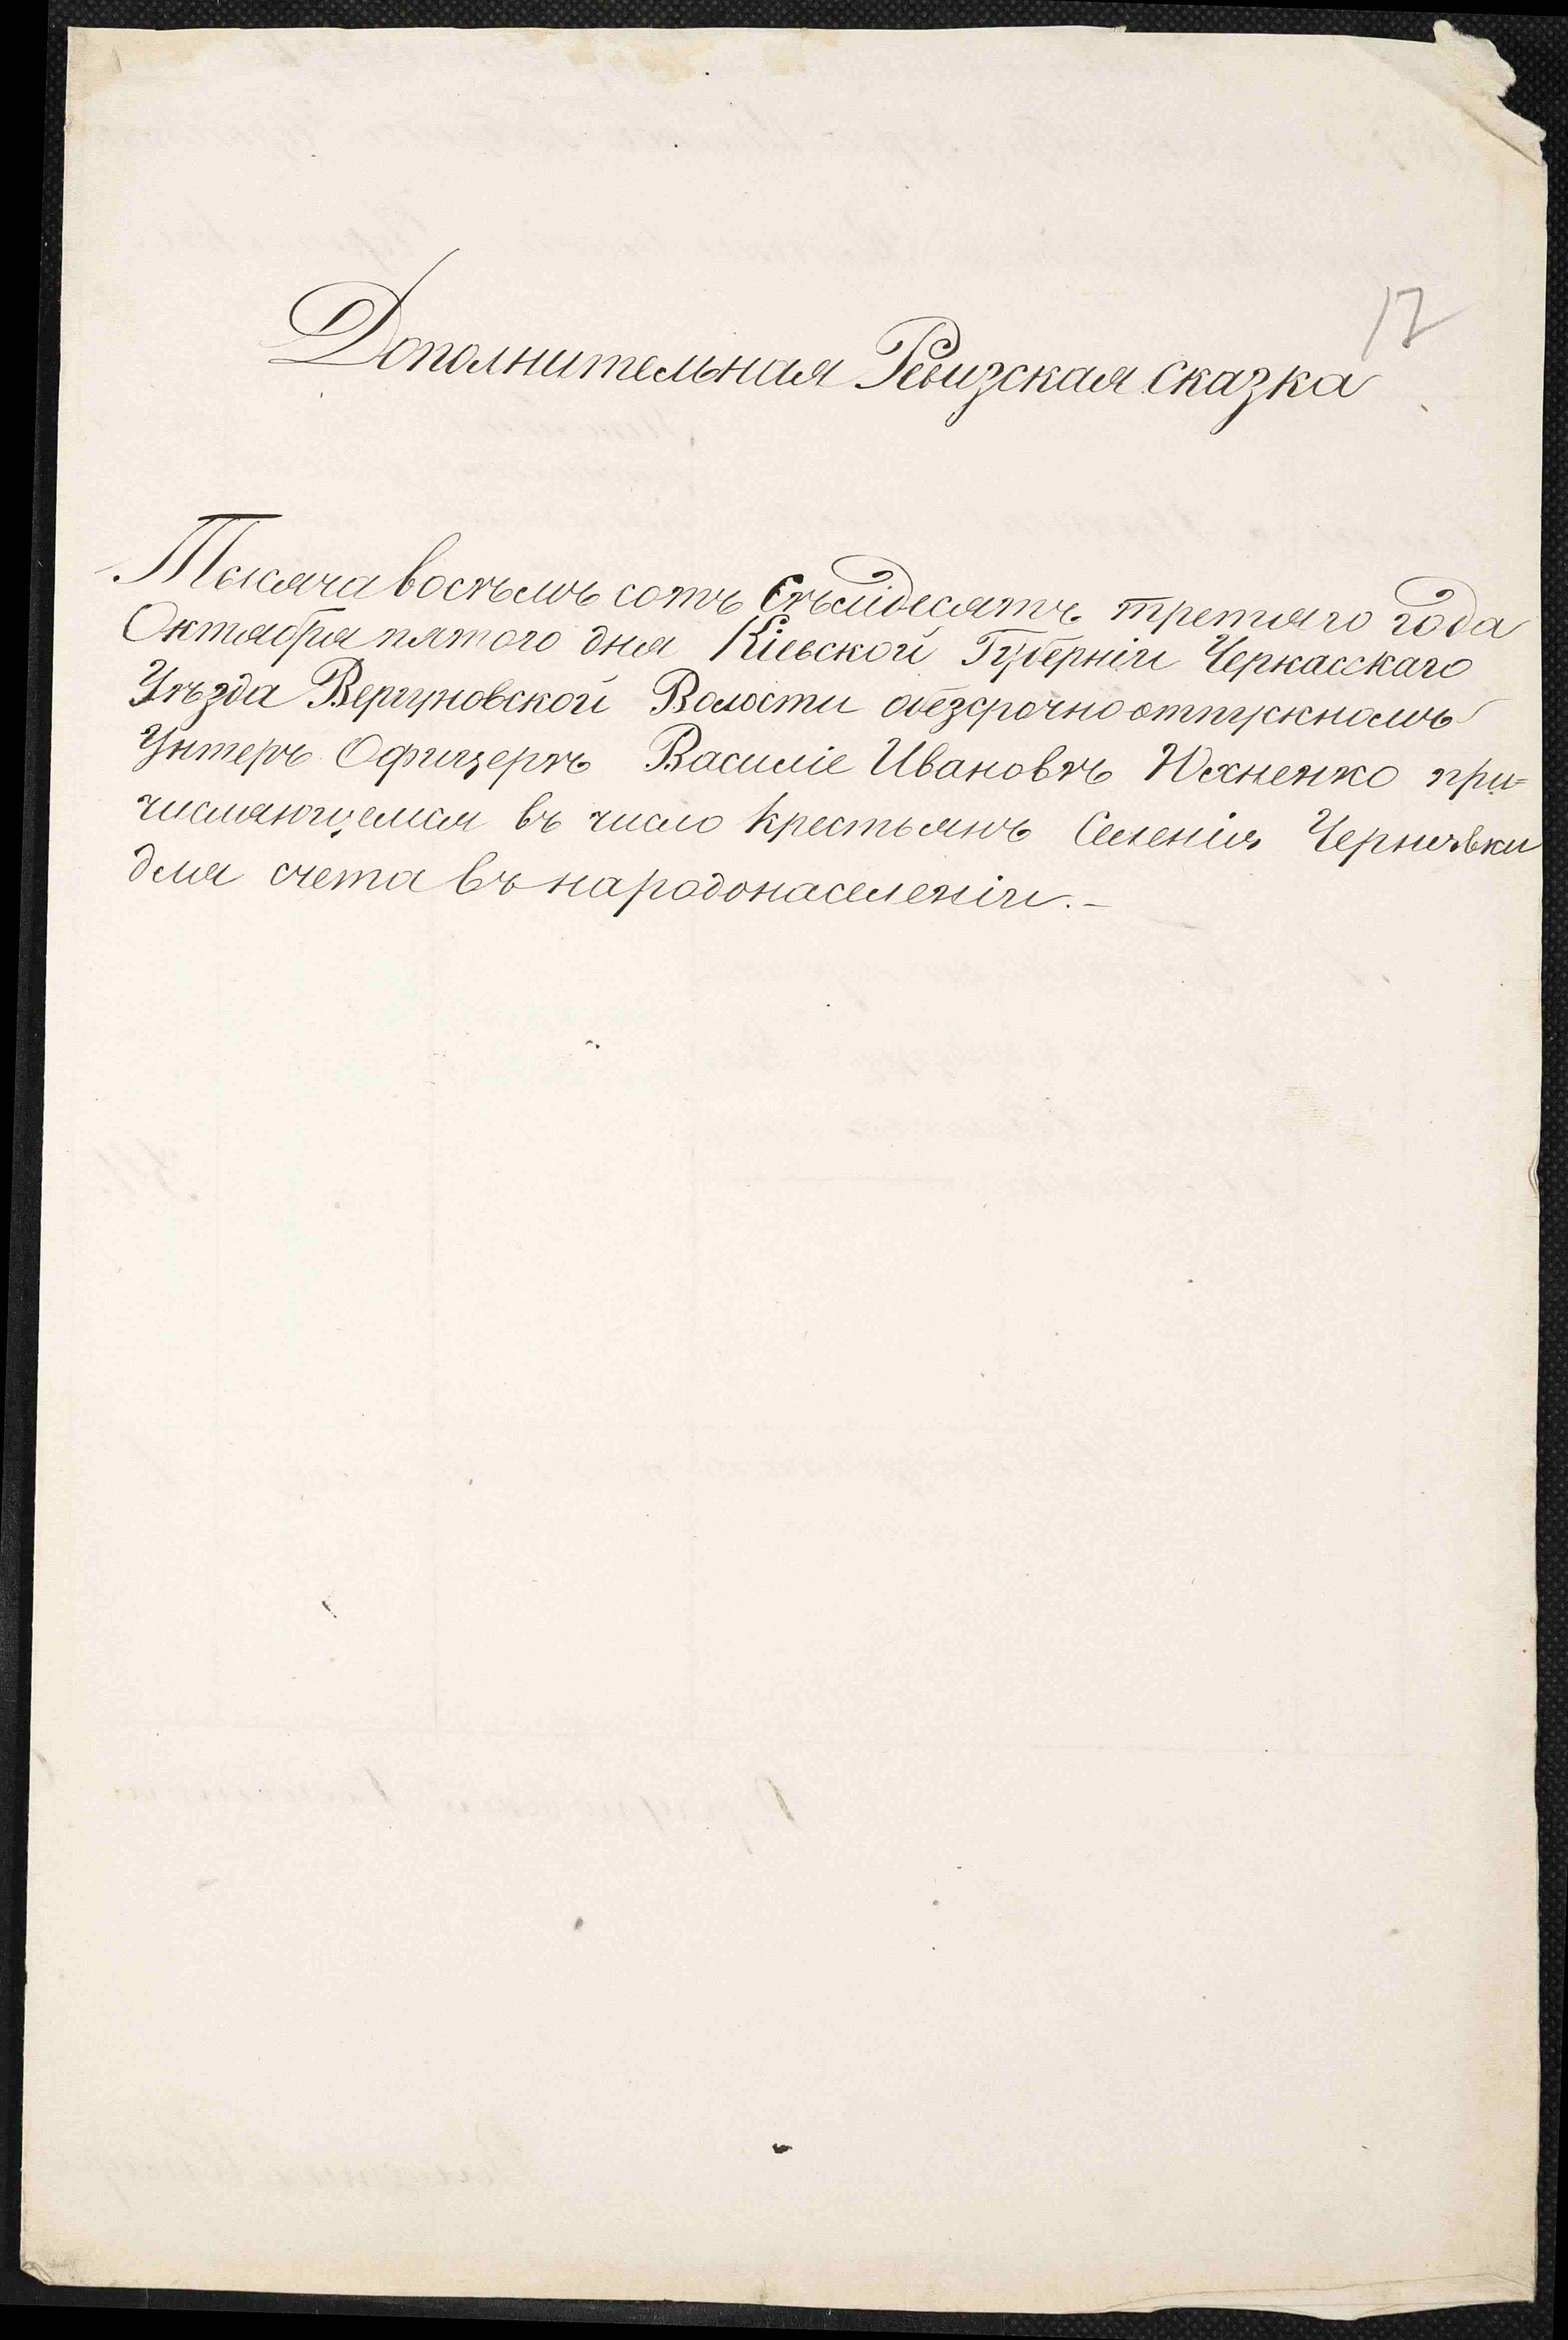 12
Дополнительная Ревизская сказка
Тысяча восѣмь сотъ Сѣмідесятъ третяго года
Октября пятого дня Кіевской Губерніи Черкасскаго
Уѣзда Вергуновской Волости обезсрочноотпускномъ
Унтеръ Офицерѣ Василіе Ивановѣ Юхненко при=
числяющемся въ число крестьянъ Селенія Чернявки
для счета въ народонаселеніи.–